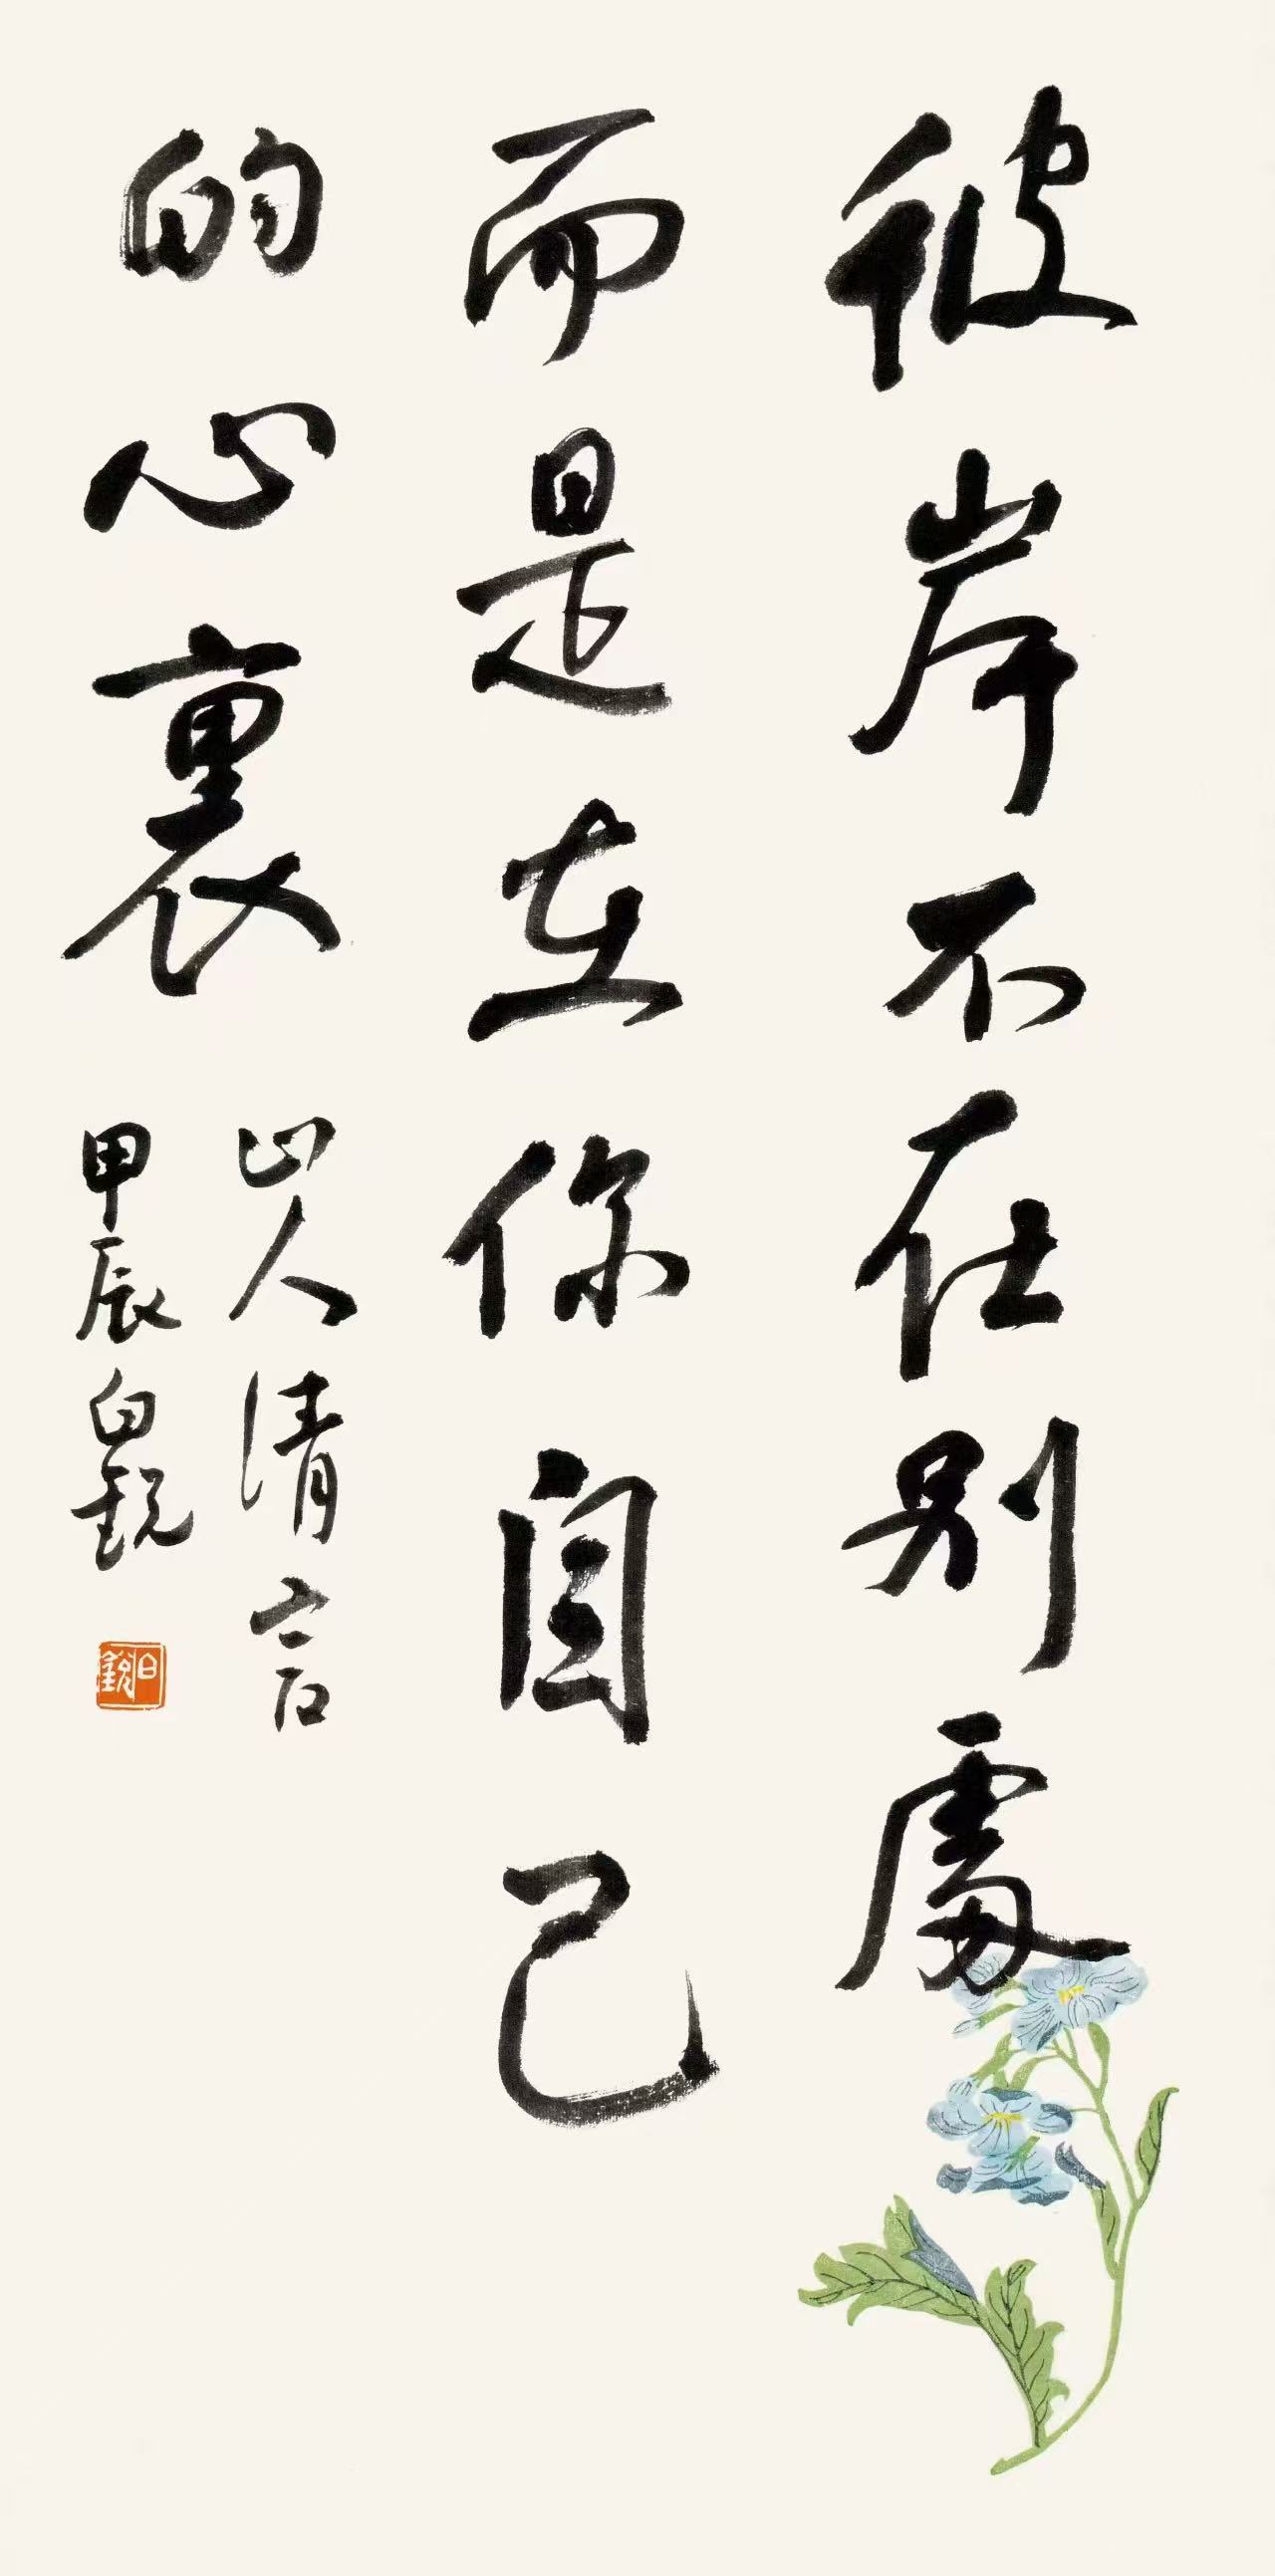 彼岸不在别處
而是在你自己
的心裏
山人清言
甲辰白銳
白銳